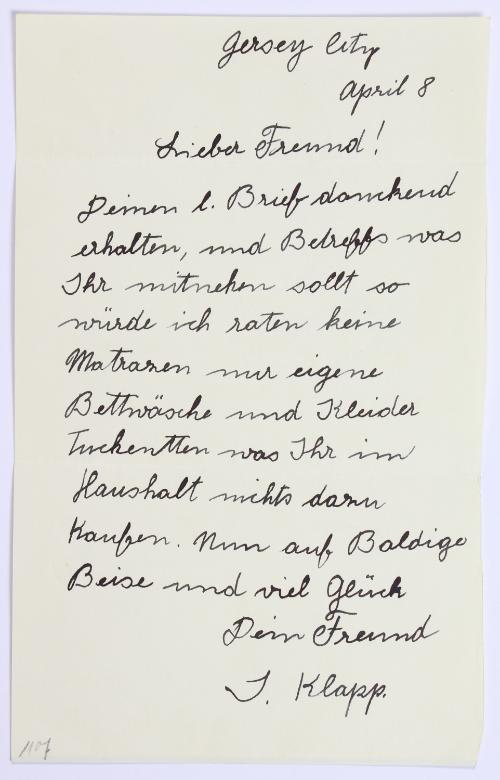 Jersey City
April 8
Lieber Freund!
Deinen l. Brief danckend
erhalten, und Betreffs was
Ihr mitnehen sollt so
würde ich raten keine
Matrazen nur eigene
Bettwäsche und Kleider
was Ihr im
Haushalt nichts dazu
Kaufen. Nun auf Baldige
Beise und viel Glück
Dein Freund
J. Klapp.
1107